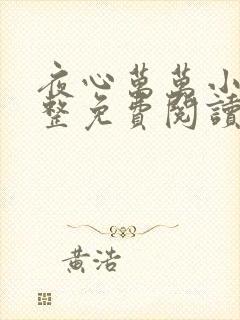 夜心萬萬小
整免費閱讀
黃浩